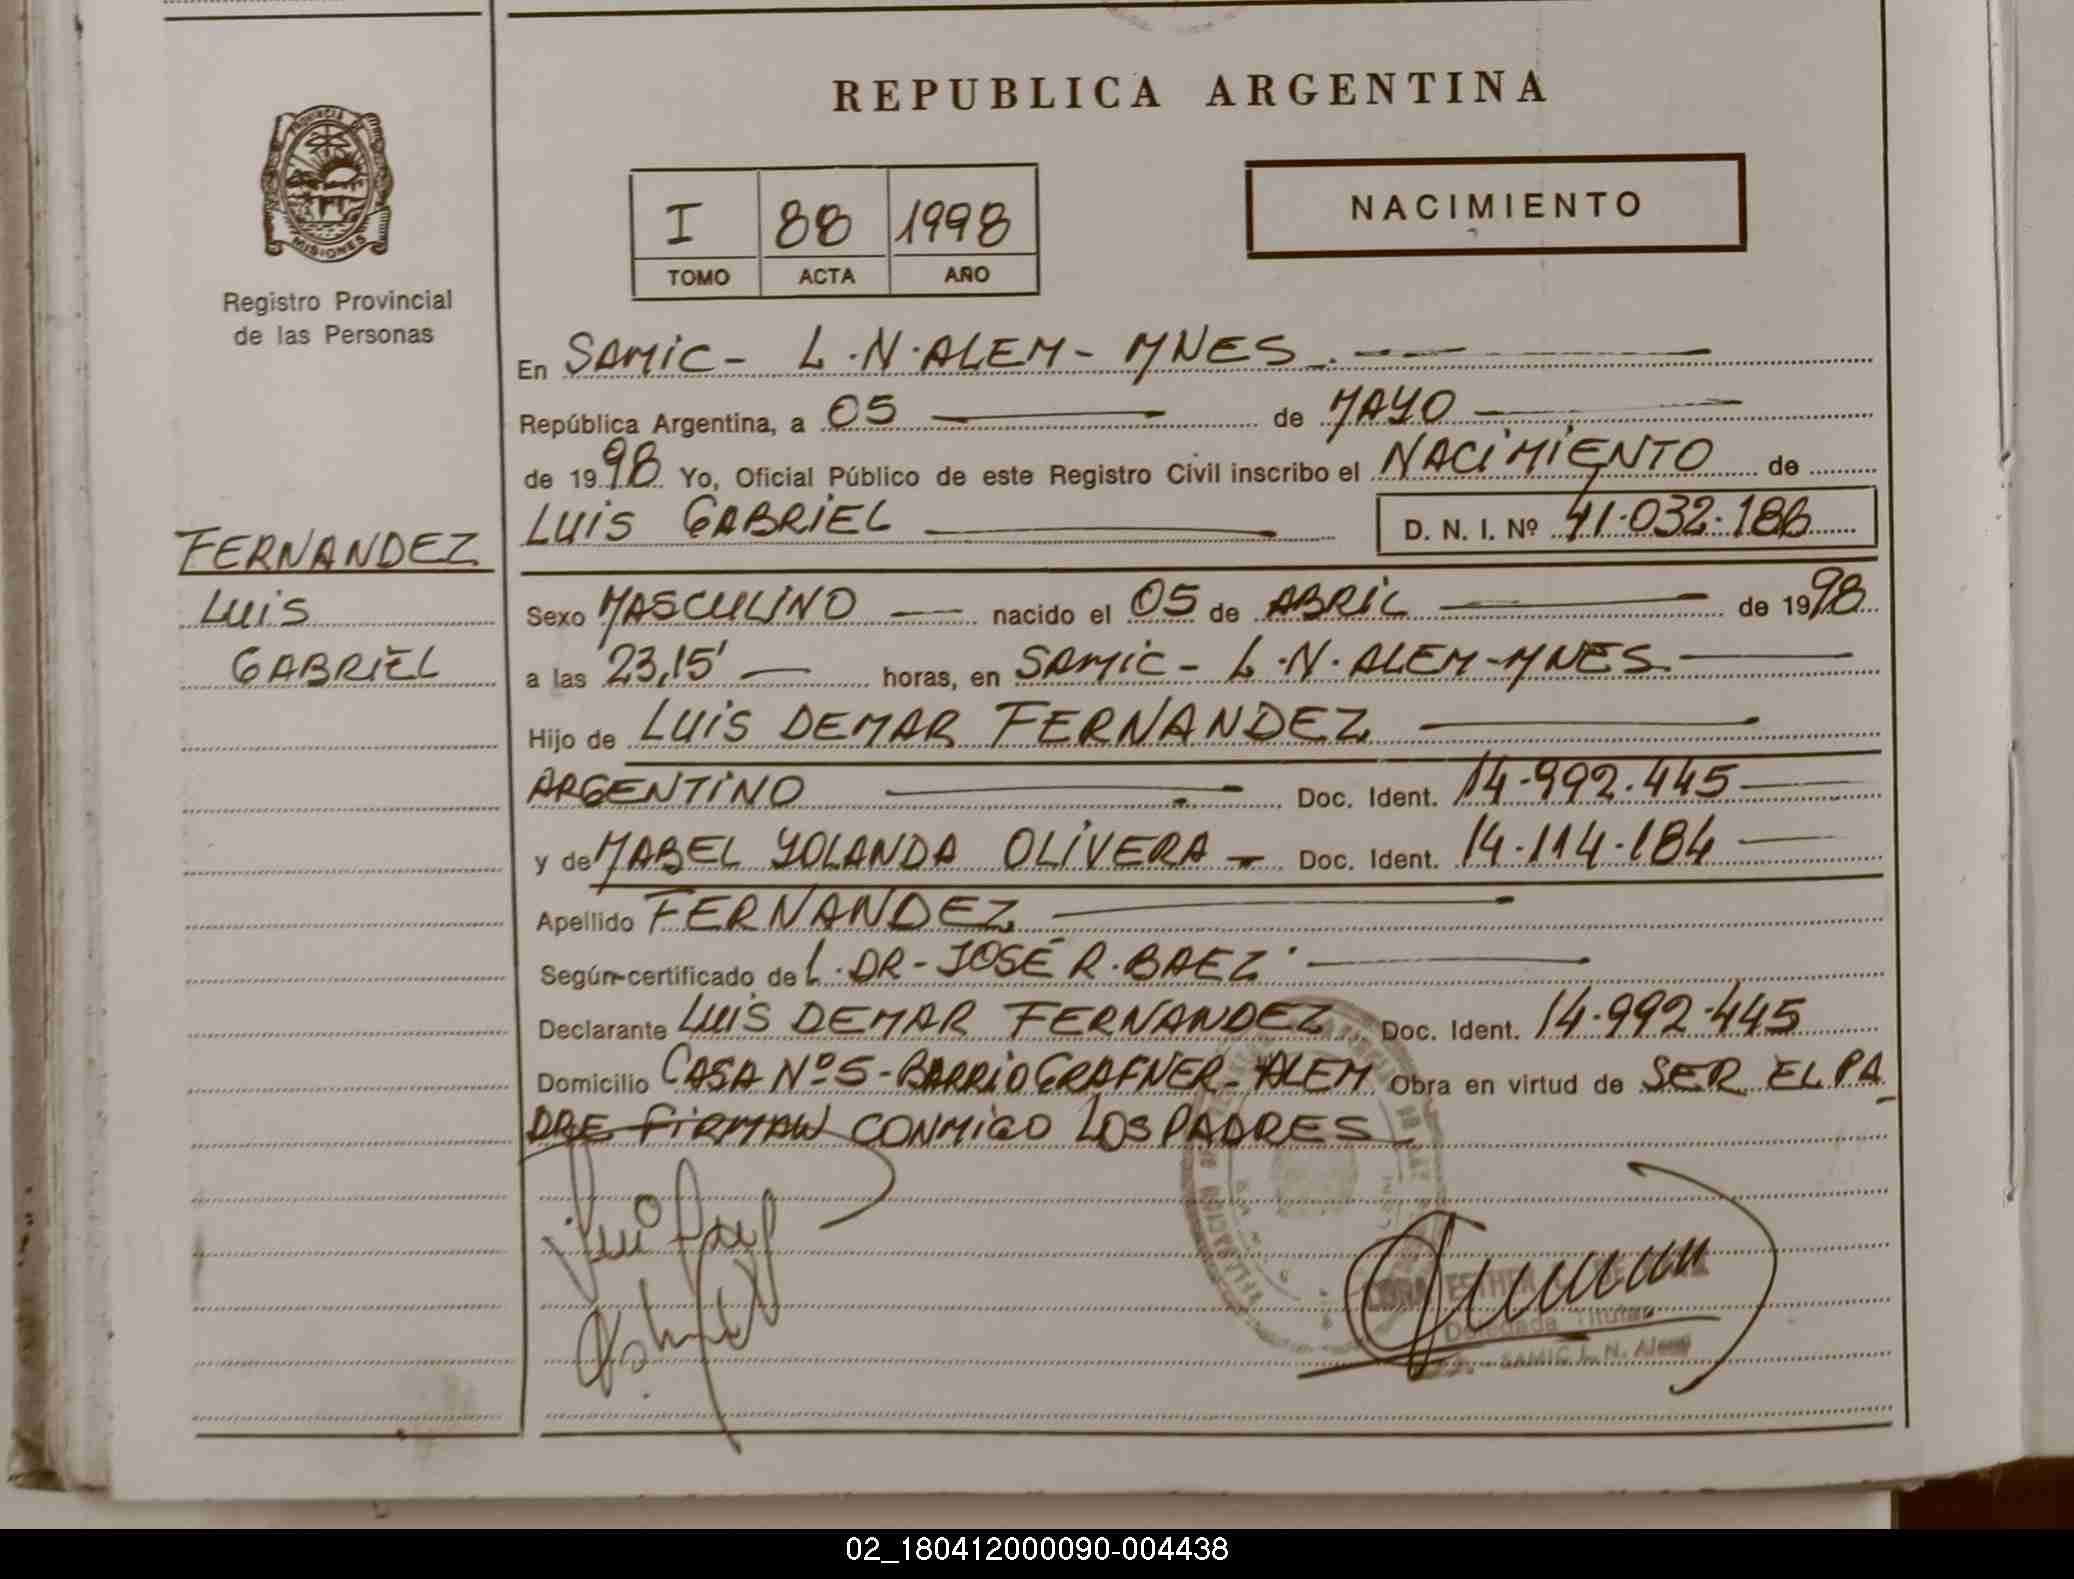 REPUBLICA ARGENTINA
PROVINCIA DE MISIONES
Registro Provincial
de las Personas
I 88 1998
TOMO ACTA AÑO
NACIMIENTO
FERNANDEZ
LUIS
GABRIEL
En SAMIC - L.N. ALEM - MNES.
República Argentina, a 05 de MAYO
de 1998 Yo, Oficial Público de este Registro Civil inscribo el NACIMIENTO de
LUIS GABRIEL D. N. I. Nº 41.032.186
Sexo MASCULINO nacido el 05 de ABRIL de 1998
a las 23,15' horas, en SAMIC - L.N. ALEM - MNES.
Hijo de LUIS DEMAR FERNANDEZ
ARGENTINO Doc. Ident. 14.992.445
y de MABEL YOLANDA OLIVERA Doc. Ident. 14.114.184
Apellido FERNANDEZ
Según certificado de L. DR. JOSÉ R. BAEZ
Declarante LUIS DEMAR FERNANDEZ Doc. Ident. 14.992.445
Domicilio CASA Nº 5 - BARRIO GRAFNER - ALEM Obra en virtud de SER EL PA
DRE FIRMAN CONMIGO LOS PADRES
ESTHER
Delegada Titular
SAMIC L. N. Alem
02_180412000090-004438